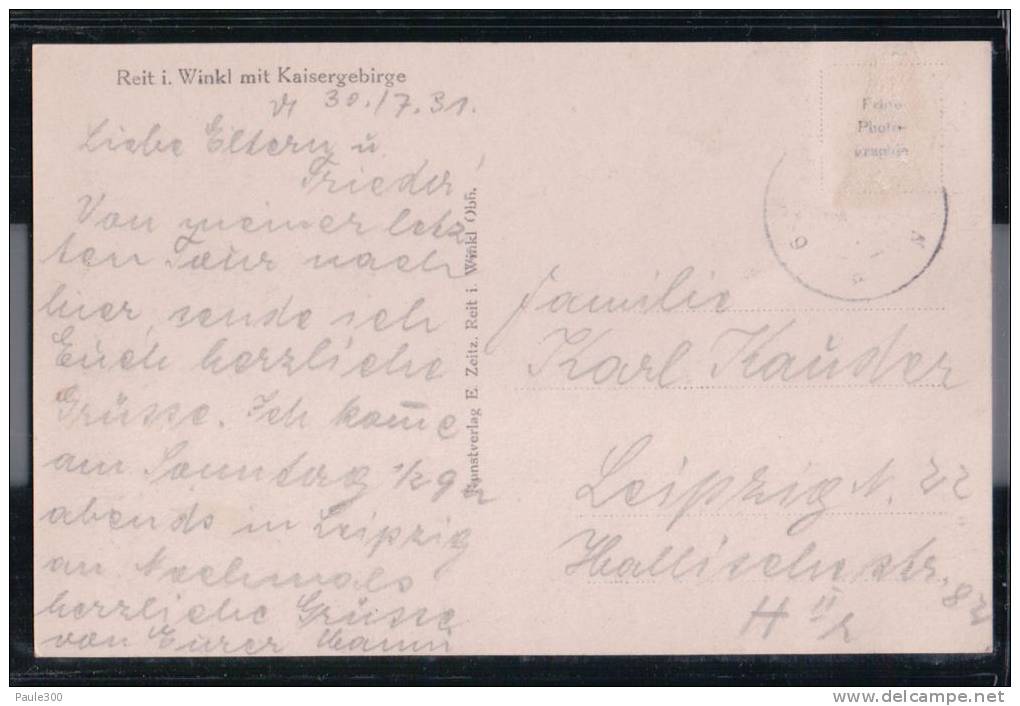 Reit i. Winkl mit Kaisergebirge
30./7.31.
Liebe Eltern u.
Frieder!
Von meiner letz
ten Tour nach
hier, sende ich
Euch herzliche
Grüsse. Ich kom̅e
am Sonntag 1/2 9 h
abends in Leipzig
an Nochmals
herzliche Grüsse
von Eurer Hanni
Kunstverlag E. Zeitz. Reit i. Winkl Obb.
Feine
Photo-
graphie
Familie
Karl Kauder
Leipzig N. 22
Hallischestr.
82
H II r
Paule300
www.delcampe.net